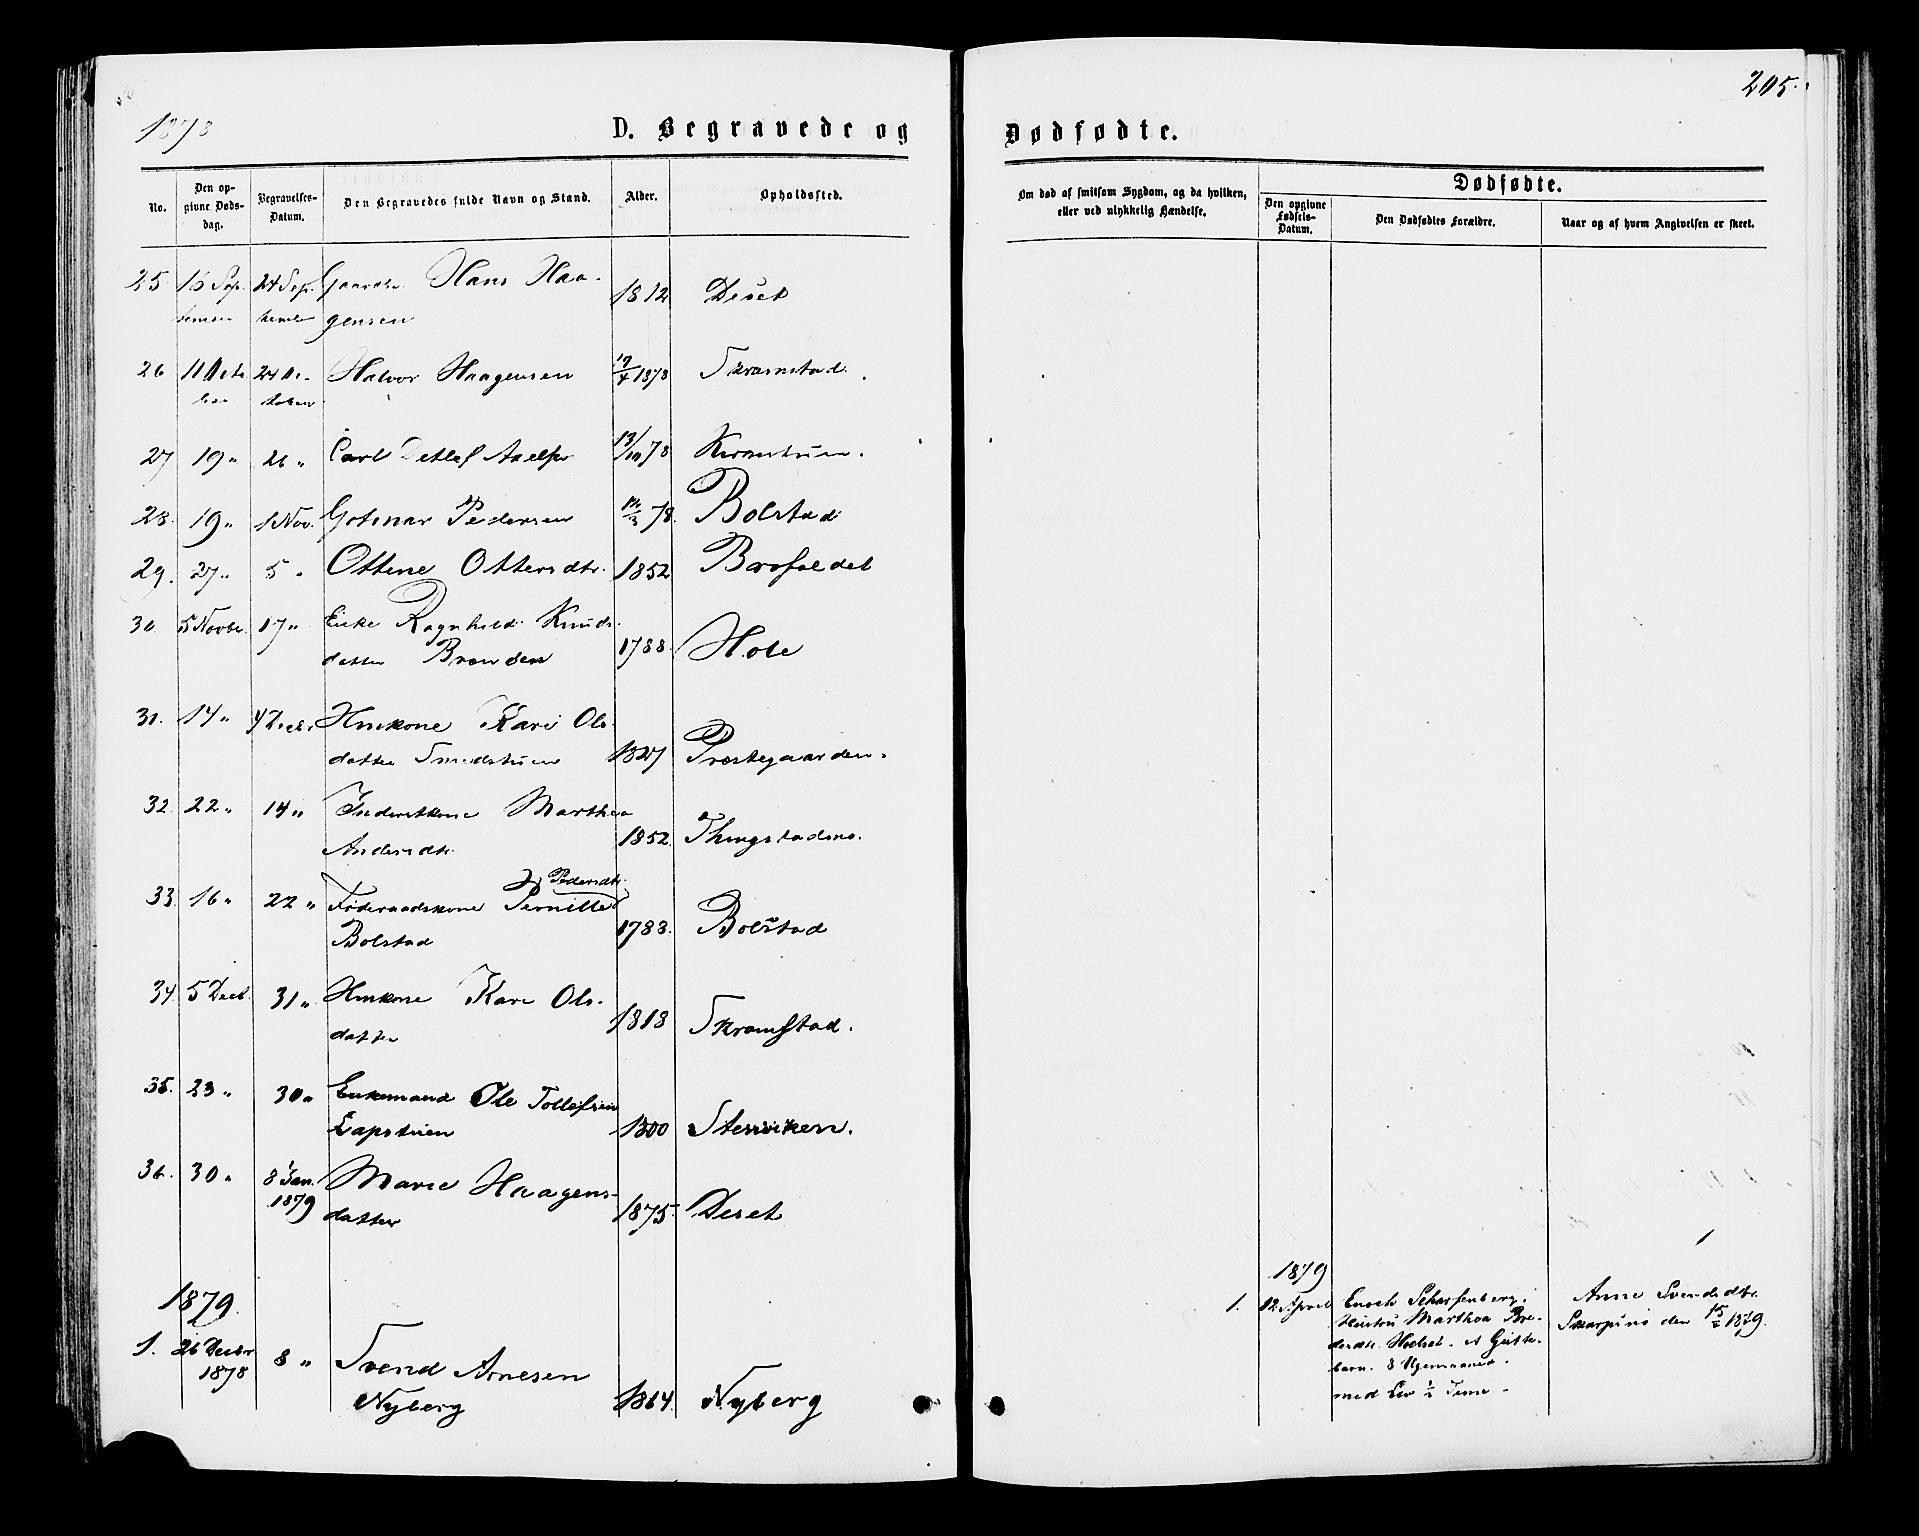 1878
D. Begravede og
No.
Den op-
givne Døds-
dag.
Begravelses-
Datum.
Den Begravedes fulde Navn og Stand.
Alder.
Opholdssted.
25. 16 Sep. 24 Sep. Hans Haa-
tember gensen 1812 Deset
26 11 Octo 24 Oc- Halvor Haagensen 19/4 1878 Skramstad.
ber tober
27 19 " 26 " Carl Detlef 13/10 78
28. 19 " 1 Nov. Gotmar Pedersen 78. Bolstad
29. 27 " 5 " Ottine Ottersdtr. 1852
30. 5 Novbr. 17 " Enke Ragnhild Knuds-
datter Brænden 1788 Hole
31. 14 " 4 Decbr Huskone Kari Ols-
datter Smedstuen 1827 Præstegaarden.
32. 22 " 14 " Inderstkone Marthea
Andersdtr. 1852
Pedersdtr.
33. 16 " 22 " Føderaadskone Pernille
Bolstad 1783. Bolstad
34. 5 Decb. 31 " Huskone Kari Ols-
datter 1818 Skramstad.
35. 23 " 30 " Enkemand Ole Tollefsen
1800 Stenviken.
36. 30 " 8 Jan. Marie Haagens-
1879 datter 1875 Deset
1879.
1. 26 Decbr 8 " Svend Arnesen
1878 Nyberg 1864 Nyberg
205.
Dødfødte.
Om død af smitsom Sygdom, og da hvilken,
eller ved ulykkelig Hændelse.
Dødfødte.
Den opgivne
Fødsels-
Datum.
Den Dødfødtes Forældre.
Naar og af hvem Angivelsen er skeet.
1879
1. 12 April Enoch Scharfenberg. Anne Svendsdtr.
Hustru Marthea Pe- den 15/4 1879.
dersdtr. et Gutte-
barn.
med Liv ½ Time.